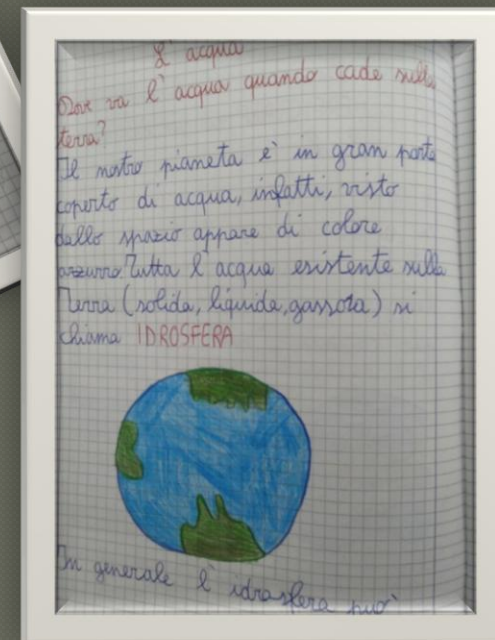 L'acqua
Dove va l'acqua quando cade sulla
terra?
Il nostro pianeta è in gran parte
coperto di acqua, infatti, visto
dallo spazio appare di colore
azzurro. Tutta l'acqua esistente sulla
Terra (solida, liquida, gassosa) si
chiama IDROSFERA
In generale l'idrosfera può